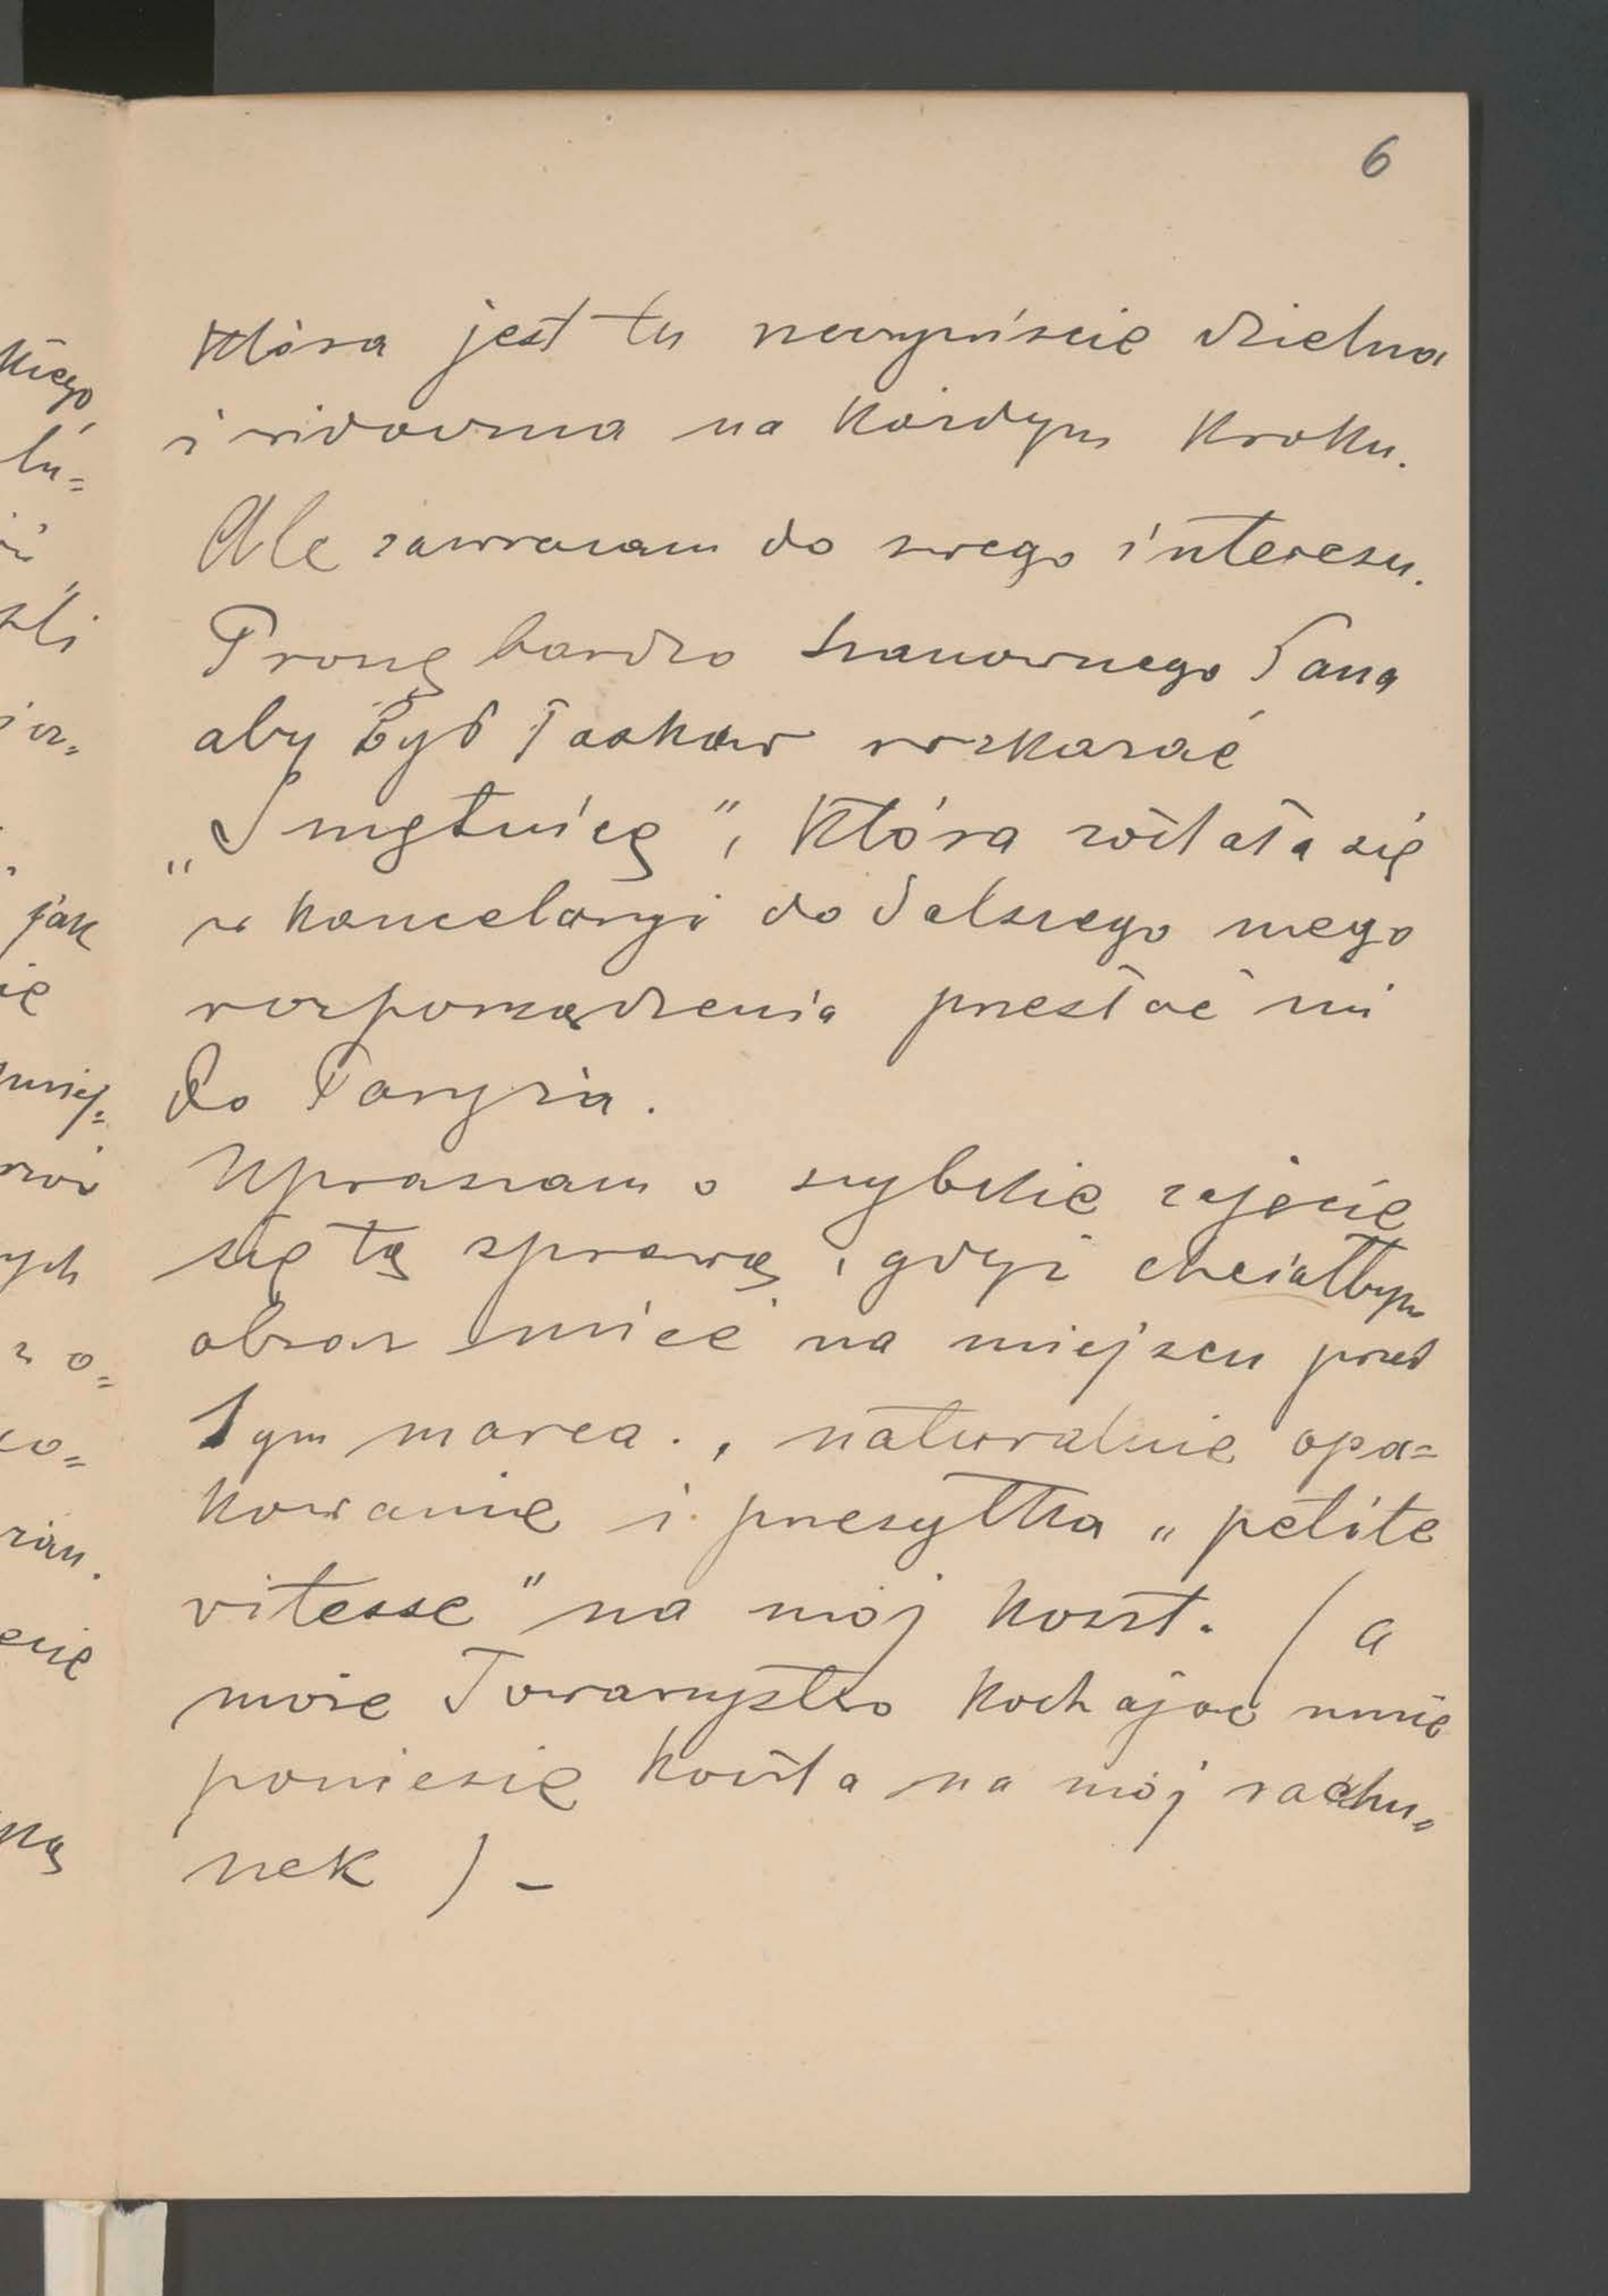 6
która jest tu rzeczywiście dzielna
i widoczna na każdym kroku.
Ale zawracam do swego interesu.
Proszę bardzo Szanownego Pana
aby był łaskaw rozkazać
„Smętnicę", która została się
w kancelaryi do dalszego mego
rozporządzenia przesłać mi
do Paryża.
Upraszam o szybkie zajęcie
się tą sprawą, gdyż chciałbym
obraz mieć na miejscu przed
1ym marca., naturalnie opa=
kowanie i przesyłka „petite
vitesse" na mój koszt. (a
może Towarzystwo kochając mnie
poniesie koszta na mój rachu=
nek) –
kiego,
lu=
śli
jak
ie
mniej=
ych
z o=
co=
ną